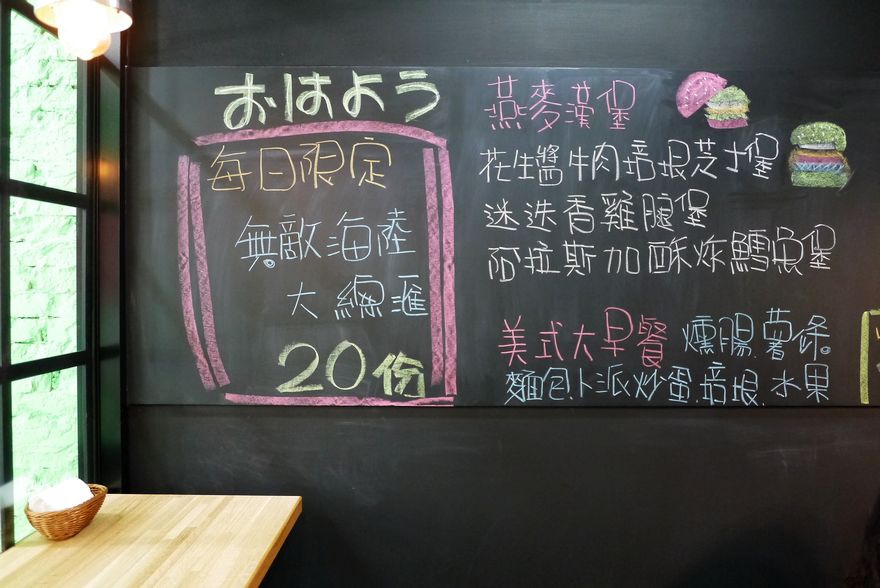 おはよう
每日限定
無敵海陸
大總滙
20份
燕麥漢堡
花生醬牛肉培根芝士堡
迷迭香雞腿堡
阿拉斯加酥炸鱈魚堡
美式大早餐 燻腸.薯條.
麵包.卜派炒蛋.培根.水果